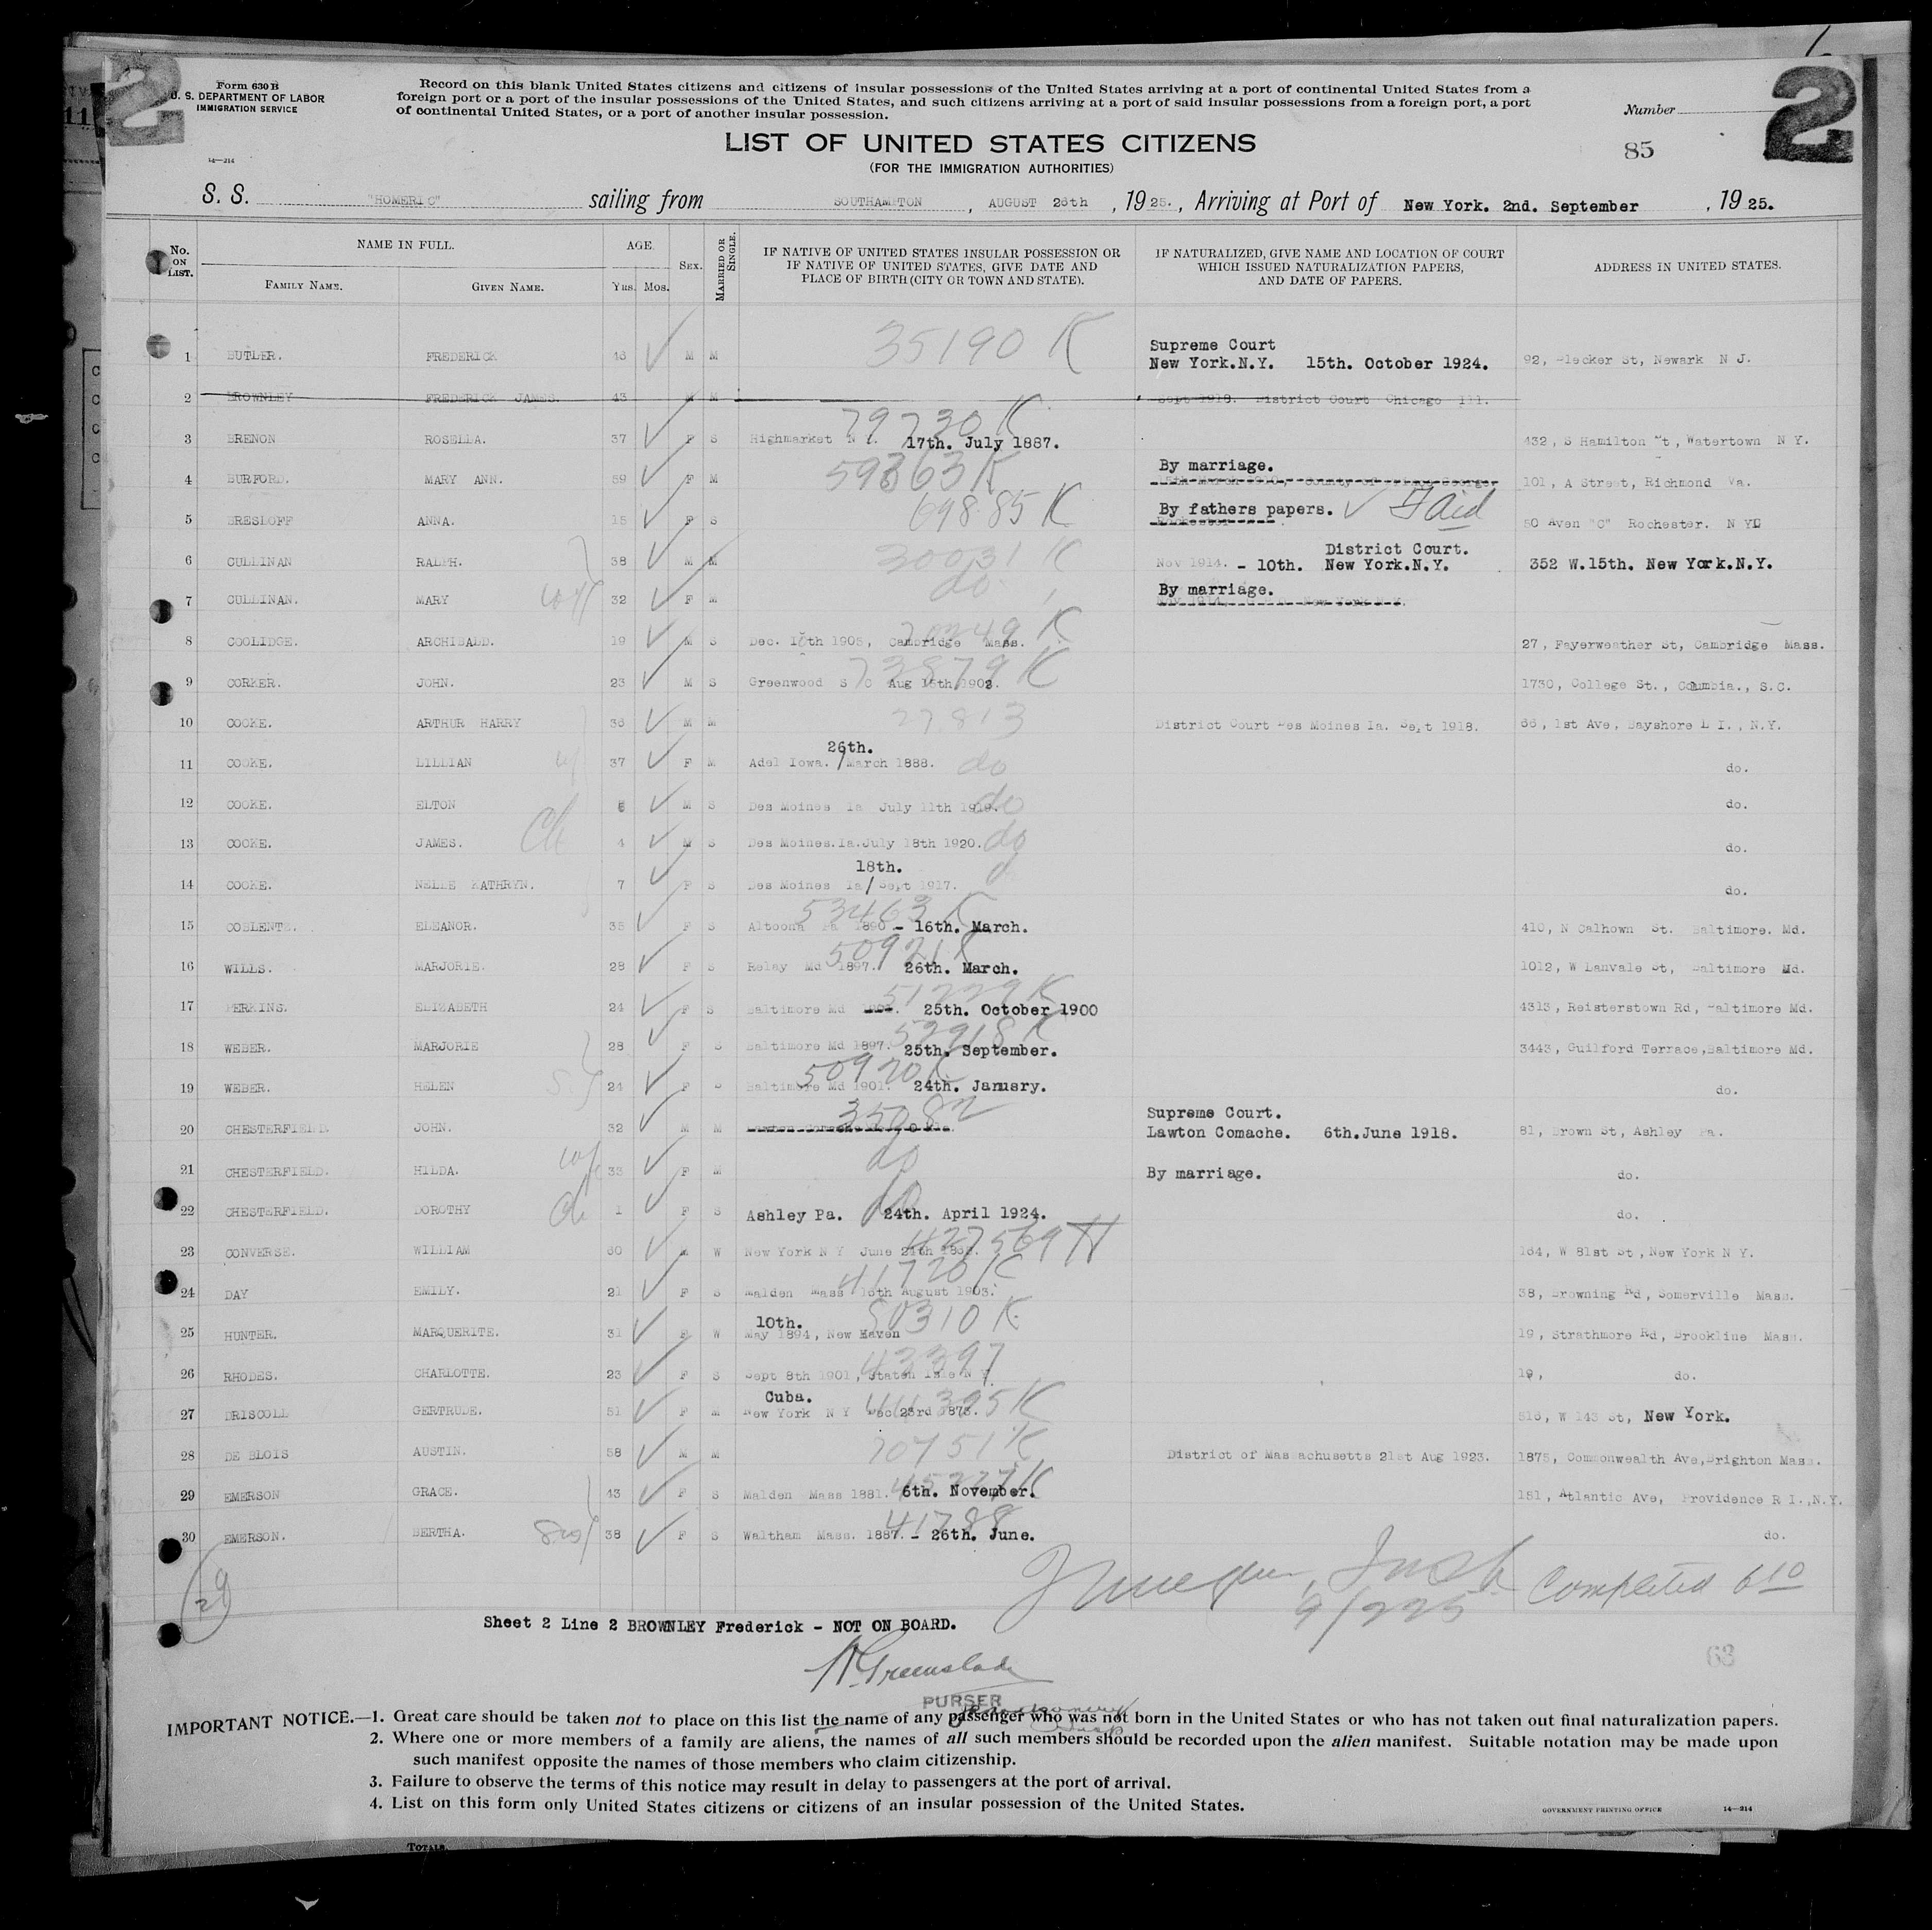 2
2
Form 630 B
U. S. DEPARTMENT OF LABOR
IMMIGRATION SERVICE
14—214
Record on this blank United States citizens and citizens of insular possessions of the United States arriving at a port of continental United States from a
foreign port or a port of the insular possessions of the United States, and such citizens arriving at a port of said insular possessions from a foreign port, a port
of continental United States, or a port of another insular possession.
Number
85
LIST OF UNITED STATES CITIZENS
(FOR THE IMMIGRATION AUTHORITIES)
S. S. "HOMERIC" sailing from SOUTHAMPTON, AUGUST 26th, 1925., Arriving at Port of New York. 2nd. September, 1925.
No. ON LIST.
NAME IN FULL.
FAMILY NAME. GIVEN NAME.
AGE.
Yrs. Mos.
SEX.
MARRIED OR SINGLE.
IF NATIVE OF UNITED STATES INSULAR POSSESSION OR
IF NATIVE OF UNITED STATES, GIVE DATE AND
PLACE OF BIRTH (CITY OR TOWN AND STATE).
IF NATURALIZED, GIVE NAME AND LOCATION OF COURT
WHICH ISSUED NATURALIZATION PAPERS,
AND DATE OF PAPERS.
ADDRESS IN UNITED STATES.
1 BUTLER. FREDERICK M M 35190 K Supreme Court New York.N.Y. 15th. October 1924. 92, St, Newark N J.
2 BROWNLEY FREDERICK JAMES. 43 M M Sept 1918. District Court Chicago Ill.
3 BRENON ROSELLA. 37 F S Highmarket N Y. 17th. July 1887. 79730 K 432, S Hamilton St, Watertown N Y.
4 BURFORD. MARY ANN. 59 F M 59363 K By marriage. 101, A Street, Richmond Va.
5 BRESLOFF ANNA. 15 F S 69885 K By fathers papers. 50 Aven "C" Rochester. N Y
6 CULLINAN RALPH. 38 M M 30031 K Nov 1914. - 10th. District Court. New York.N.Y. 352 W.15th. New York.N.Y.
7 CULLINAN. MARY wf 32 F M do By marriage.
8 COOLIDGE. ARCHIBALD. 19 M S Dec. 10th 1905, Cambridge Mass. 27, Fayerweather St, Cambridge Mass.
9 CORKER. JOHN. 23 M S Greenwood S C Aug 15th 1902. 73879 K 1730, College St., Columbia., S.C.
10 COOKE. ARTHUR HARRY 36 M M 27813 District Court Des Moines Ia. Sept 1918. 66, 1st Ave, Bayshore L I., N.Y.
11 COOKE. LILLIAN wf 37 F M Adel Iowa. / 26th. March 1888. do do.
12 COOKE. ELTON M S Des Moines Ia July 11th 1919. do do.
13 COOKE. JAMES. Ch 4 M S Des Moines.Ia.July 18th 1920. do do.
14 COOKE. NELLE KATHRYN. 7 F S Des Moines Ia / 18th. Sept 1917. do.
15 COBLENTZ. ELEANOR. 35 F S Altoona Pa 1890 - 16th. March. 53463 K 410, N Calhown St. Baltimore. Md.
16 WILLS. MARJORIE. 28 F S Relay Md 1897. 26th. March. 50921 K 1012, W Lanvale St, Baltimore Md.
17 PERKINS. ELIZABETH 24 F S Baltimore Md 25th. October 1900 51229 K 4313, Reisterstown Rd, Baltimore Md.
18 WEBER. MARJORIE 28 F S Baltimore Md 1897. 25th. September. 52918 K 3443, Guilford Terrace, Baltimore Md.
19 WEBER. HELEN 24 F S Baltimore Md 1901. 24th. January. 50920 K do.
20 CHESTERFIELD. JOHN. 32 M M 35082 Supreme Court. Lawton Comache. 6th.June 1918. 81, Brown St, Ashley Pa.
21 CHESTERFIELD. HILDA. wf 33 F M do By marriage. do.
22 CHESTERFIELD. DOROTHY Ch 1 F S Ashley Pa. 24th. April 1924. do do.
23 CONVERSE. WILLIAM 60 M W New York N Y June 427569 H 164, W 81st St, New York N Y.
24 DAY EMILY. 21 F S Malden Mass 15th August 1903. 41720 K 38, Browning Rd, Somerville Mass.
25 HUNTER. MARQUERITE. 31 F W 10th. May 1894, New Haven 80310 K 19, Strathmore Rd, Brookline Mass.
26 RHODES. CHARLOTTE. 23 F S Sept 8th 1901, Staten Isle N Y 43397 19, do.
27 DRISCOLL GERTRUDE. 51 F M Cuba. New York N Y Dec 23rd 1873. 516, W 143 St, New York.
28 DE BLOIS AUSTIN. 58 M M 70751 K District of Massachusetts 21st Aug 1923. 1875, Commonwealth Ave,Brighton Mass.
29 EMERSON GRACE. 43 F S Malden Mass 1881. 6th. November. 181, Atlantic Ave, Providence R I.,N.Y.
30 EMERSON. BERTHA. 38 F S Waltham Mass. 1887. - 26th. June. 41788 do.
29
Completed 6 10
Sheet 2 Line 2 BROWNLEY Frederick - NOT ON BOARD.
Greenslade
PURSER
63
IMPORTANT NOTICE.—1. Great care should be taken not to place on this list the name of any passenger who was not born in the United States or who has not taken out final naturalization papers.
2. Where one or more members of a family are aliens, the names of all such members should be recorded upon the alien manifest. Suitable notation may be made upon
such manifest opposite the names of those members who claim citizenship.
3. Failure to observe the terms of this notice may result in delay to passengers at the port of arrival.
4. List on this form only United States citizens or citizens of an insular possession of the United States.
GOVERNMENT PRINTING OFFICE 14—214
TOTALS.